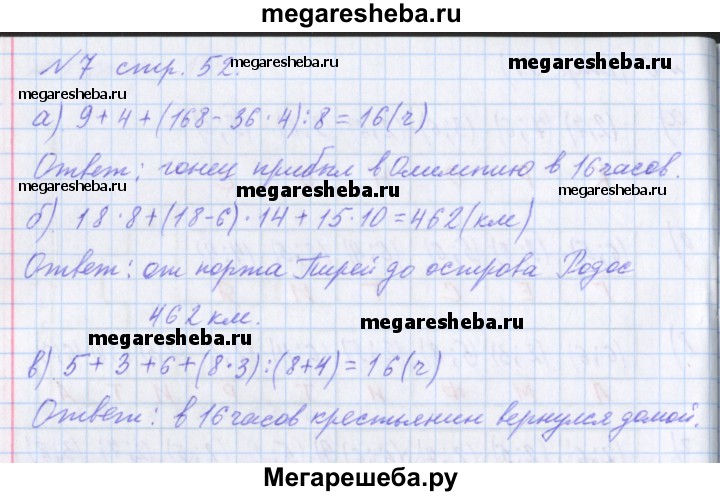 megaresheba.ru
№7 стр. 52.
megaresheba.ru
megaresheba.ru
megaresheba.ru
а) 9+4+(168-36·4):8=16(ч)
Ответ: гонец прибыл в Олимпию в 16 часов.
megaresheba.ru
megaresheba.ru
б) 18·8+(18-6)·14+15·10=462(км)
Ответ: от порта Пирей до острова Родос
462 км.
megaresheba.ru
megaresheba.ru
в) 5+3+6+(8·3):(8+4)=16(ч)
Ответ: в 16 часов крестьянин вернулся домой.
Мегарешеба.ру